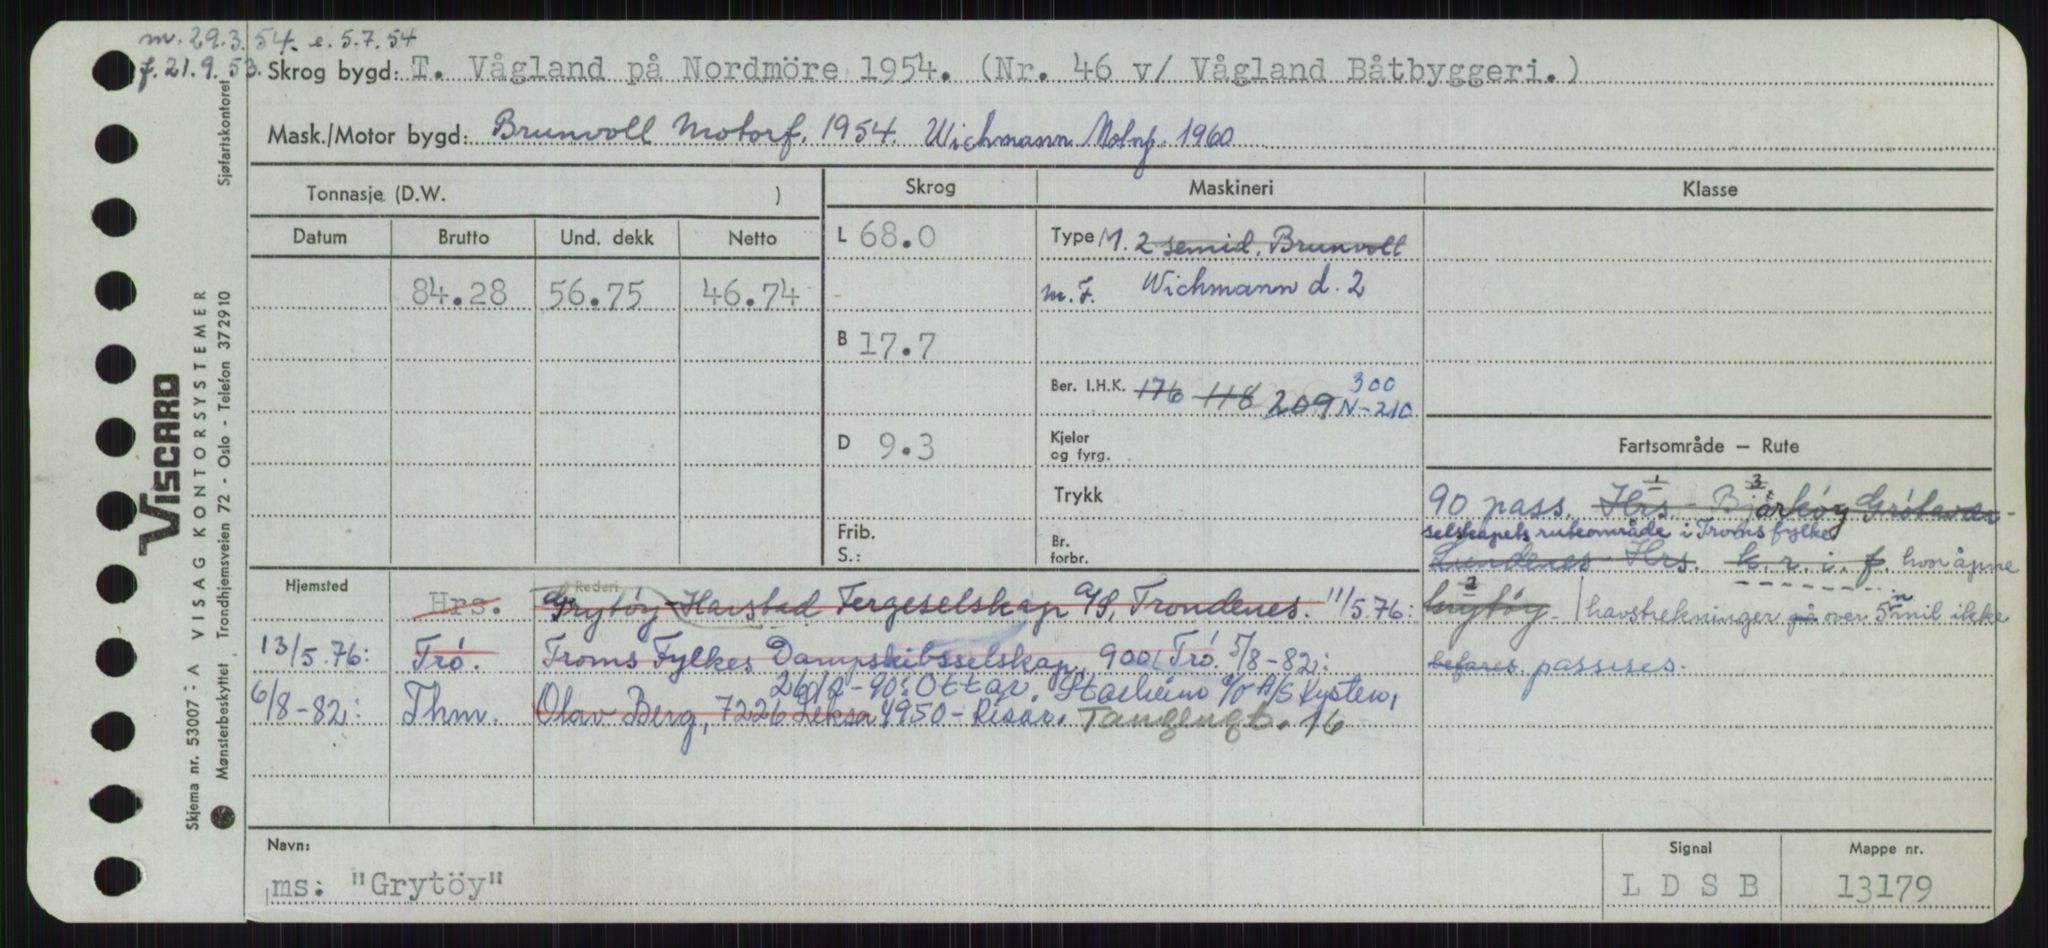 m. 29.3.54. e. 5.7.54
f. 21.9.53.
Skrog bygd: T. Vågland på Nordmöre 1954. (Nr. 46 v/ Vågland Båtbyggeri.)
Mask./Motor bygd: Brunvoll Motorf. 1954. Wichmann Motorf. 1960
Tonnasje (D.W. )
Skrog
Maskineri
Klasse
Datum
Brutto
Und. dekk
Netto
84.28
56.75
46.74
L 68.0
B 17.7
D 9.3
Frib.
S.:
Type M. 2 semid. Brunvoll
m.F. Wichmann d. 2
300
Ber. I.H.K. 176 118 209 N-210
Kjeler
og fyrg.
Trykk
Br.
forbr.
Fartsområde — Rute
1 3
90 pass. Hrs. - Bjarköy Grötavær -
selskapets ruteområde i Troms fylke
Lundenes Hrs. k. r. i. f. hvor åpne
2 n
Grytöy - havstrekninger på over 5 mil ikke
befares. passeres.
Hjemsted
Rederi
Hrs. Grytöy-Harstad Fergeselskap A/S, Trondenes. 11/5.76:
13/5.76: Trö. Troms Fylkes Dampskibsselskap, 9001 Trö. 5/8-82:
26/2-90: Ottar Starheim c/o A/S Kysten,
6/8-82: Thm. Olav Berg, 7226 Leksa 4950 - Risør. Tangengt. 16
Navn:
ms: "Grytöy"
Signal
L D S B
Mappe nr.
13179
Sjøfartskontoret
VISCARD
A VISAG KONTORSYSTEMER
Skjema nr. 53007:
Mønsterbeskyttet Trondhjemsveien 72 - Oslo - Telefon 372910